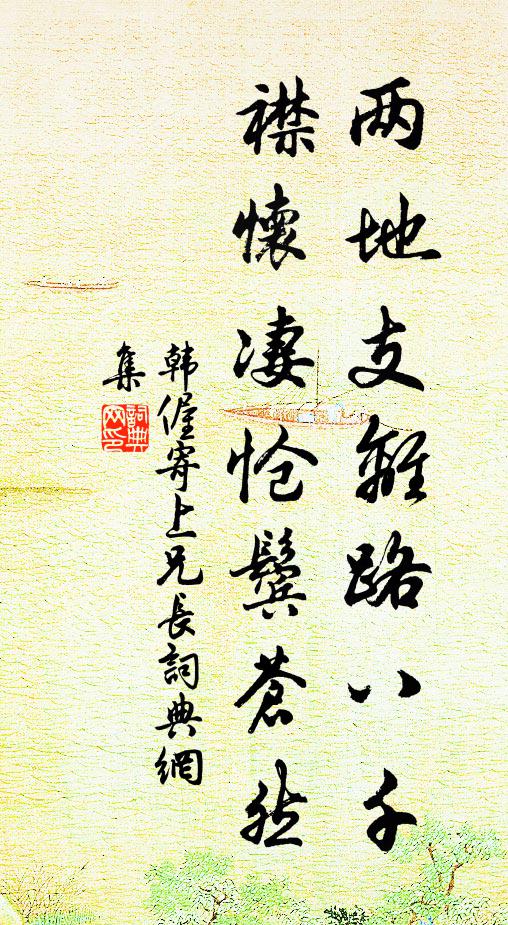 两地支離路八千
襟懷凄怆鬓蒼然
韩偓寄上兄長詞典網
集
詞典网印